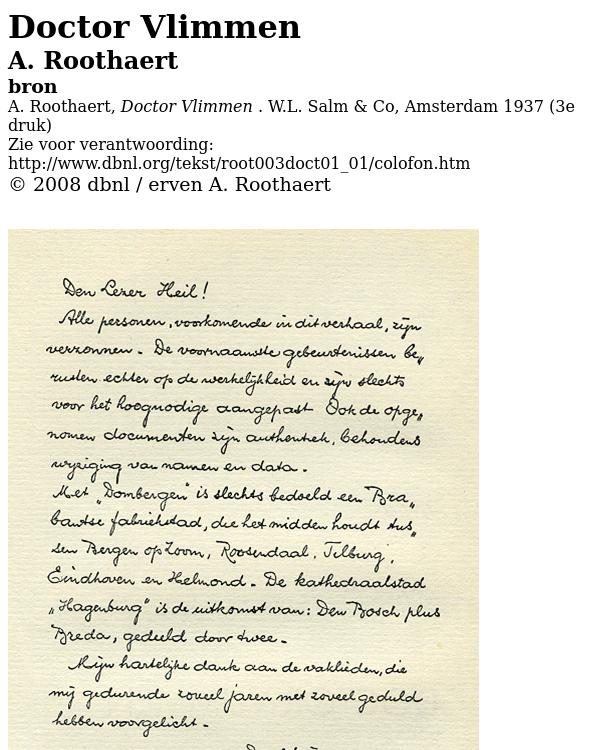 Doctor Vlimmen
A. Roothaert
bron
A. Roothaert, Doctor Vlimmen . W.L. Salm & Co, Amsterdam 1937 (3e
druk)
Zie voor verantwoording:
http://www.dbnl.org/tekst/root003doct01_01/colofon.htm
© 2008 dbnl / erven A. Roothaert
Den Lezer Heil!
Alle personen, voorkomende in dit verhaal, zijn
verzonnen. De voornaamste gebeurtenissen be„
rusten echter op de werkelijkheid en zijn slechts
voor het hoognodige aangepast. Ook de opge„
nomen documenten zijn authentiek, behoudens
wijziging van namen en data.
Met „Dombergen" is slechts bedoeld een Bra„
bantse fabriekstad, die het midden houdt tus„
sen Bergen op Zoom, Roosendaal, Tilburg,
Eindhoven en Helmond. De kathedraalstad
„Hagenburg" is de uitkomst van: Den Bosch plus
Breda, gedeeld door twee.
Mijn hartelijke dank aan de vaklieden, die
mij gedurende zoveel jaren met zoveel geduld
hebben voorgelicht.